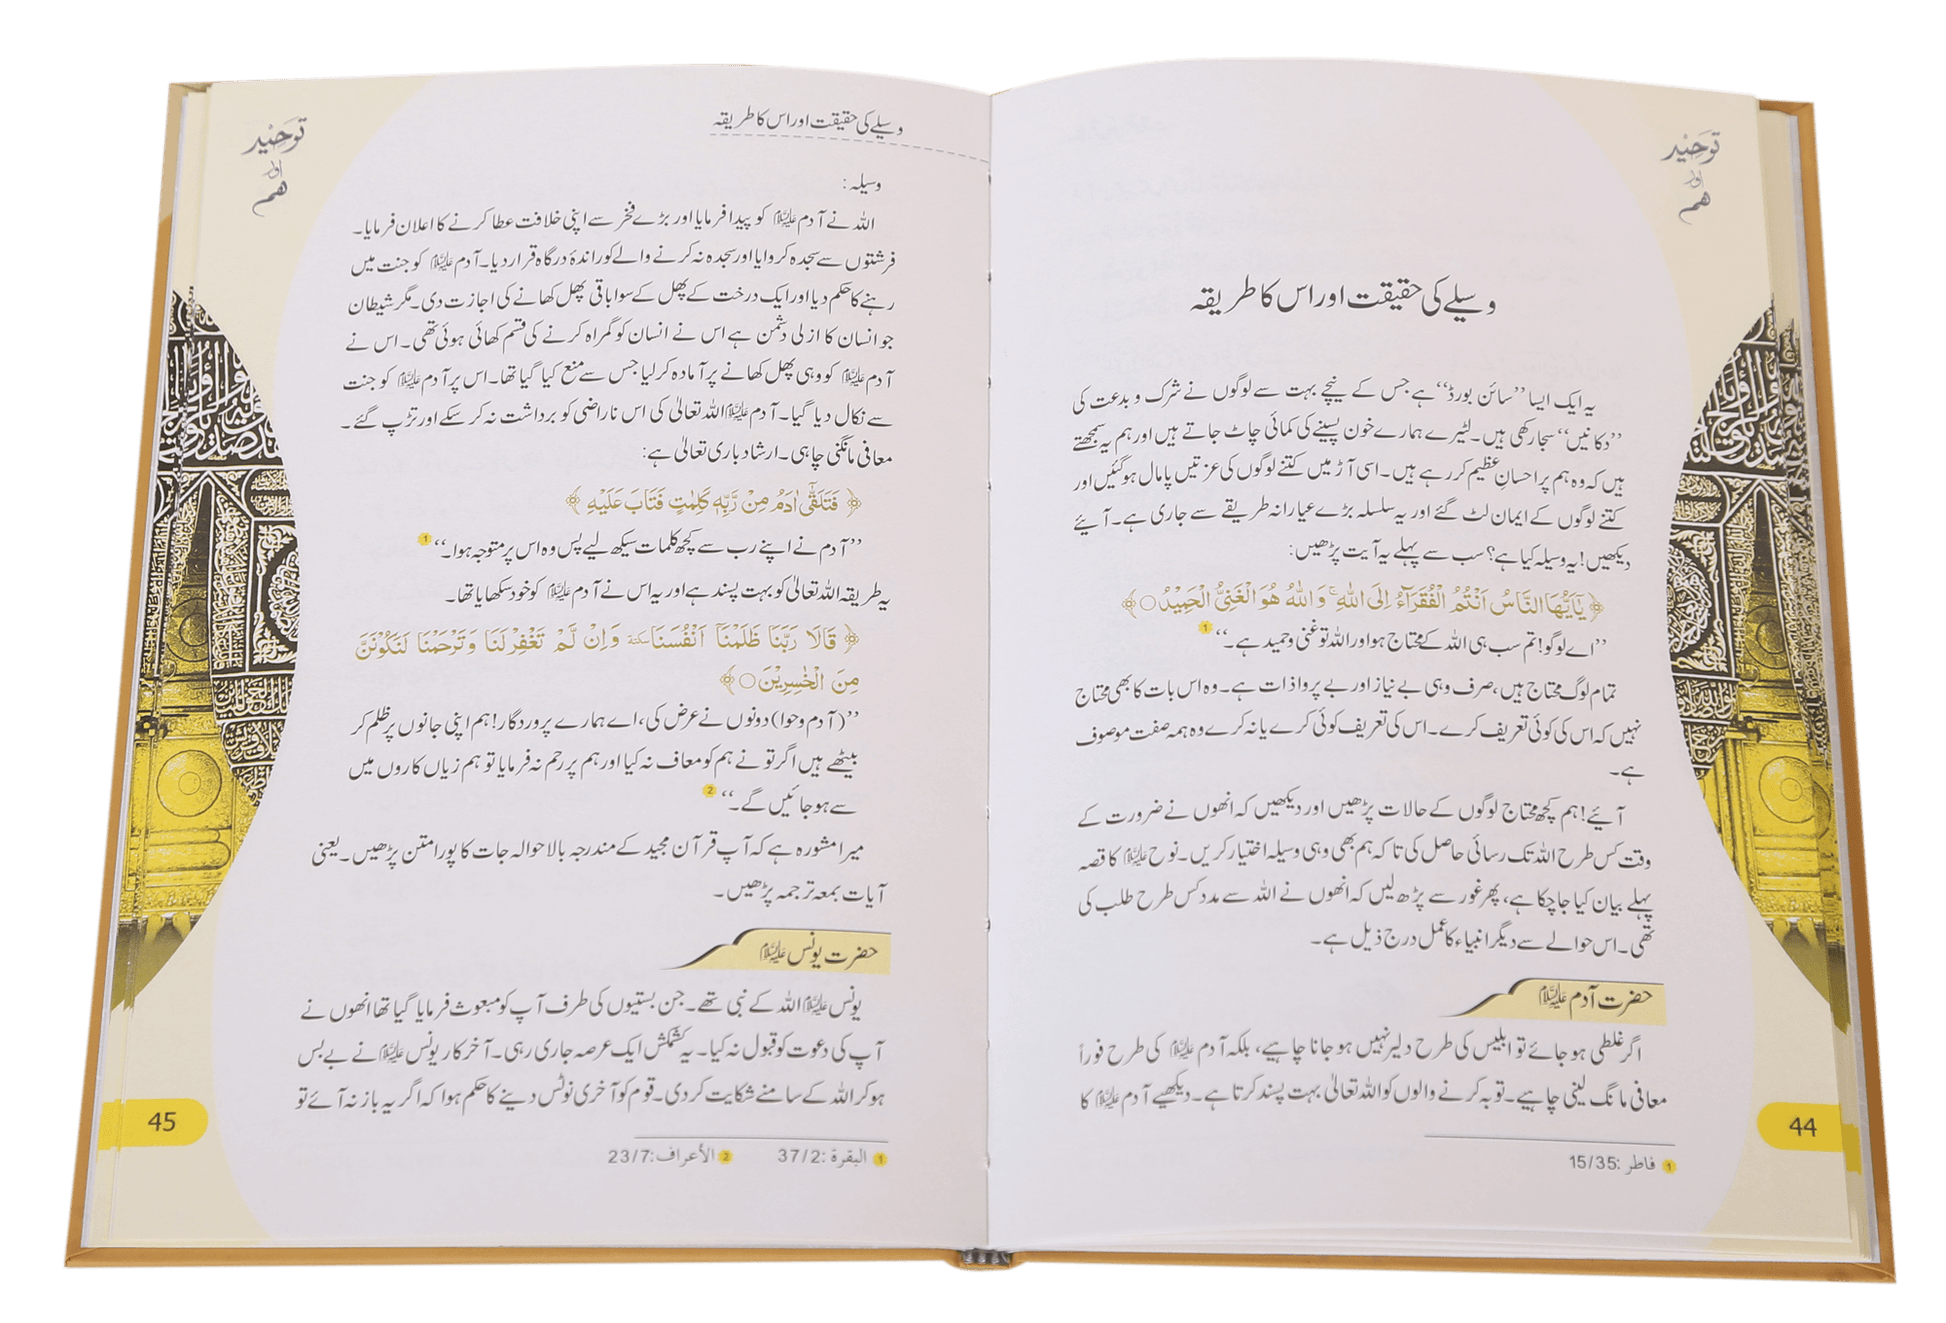 توحید
اور
ھم
وسیلے کی حقیقت اور اس کا طریقہ
یہ ایک ایسا ’’سائن بورڈ‘‘ ہے جس کے نیچے بہت سے لوگوں نے شرک و بدعت کی
’’دکانیں‘‘ سجا رکھی ہیں۔ لٹیرے ہمارے خون پسینے کی کمائی چاٹ جاتے ہیں اور ہم یہ سمجھتے
ہیں کہ وہ ہم پر احسانِ عظیم کر رہے ہیں۔ اسی آڑ میں کتنے لوگوں کی عزتیں پامال ہو گئیں اور
کتنے لوگوں کے ایمان لٹ گئے اور یہ سلسلہ بڑے عیارانہ طریقے سے جاری ہے۔ آیئے
دیکھیں! یہ وسیلہ کیا ہے؟ سب سے پہلے یہ آیت پڑھیں:
﴿ یٰۤاَیُّهَا النَّاسُ اَنْتُمُ الْفُقَرَآءُ اِلَی اللّٰهِ ۚ وَ اللّٰهُ هُوَ الْغَنِیُّ الْحَمِیْدُ ○ ﴾
’’اے لوگو! تم سب ہی اللہ کے محتاج ہو اور اللہ تو غنی و حمید ہے۔‘‘ 1
تمام لوگ محتاج ہیں، صرف وہی بے نیاز اور بے پروا ذات ہے۔ وہ اس بات کا بھی محتاج
نہیں کہ اس کی کوئی تعریف کرے۔ اس کی تعریف کوئی کرے یا نہ کرے وہ ہمہ صفت موصوف
ہے۔
آیئے! ہم کچھ محتاج لوگوں کے حالات پڑھیں اور دیکھیں کہ انھوں نے ضرورت کے
وقت کس طرح اللہ تک رسائی حاصل کی تاکہ ہم بھی وہی وسیلہ اختیار کریں۔ نوح علیہ السلام کا قصہ
پہلے بیان کیا جا چکا ہے، پھر غور سے پڑھ لیں کہ انھوں نے اللہ سے مدد کس طرح طلب کی
تھی۔ اس حوالے سے دیگر انبیاء کا عمل درج ذیل ہے۔
حضرت آدم علیہ السلام
اگر غلطی ہو جائے تو ابلیس کی طرح دلیر نہیں ہو جانا چاہیے، بلکہ آدم علیہ السلام کی طرح فوراً
معافی مانگ لینی چاہیے۔ توبہ کرنے والوں کو اللہ تعالیٰ بہت پسند کرتا ہے۔ دیکھیے آدم علیہ السلام کا
1 فاطر :15/35
44
توحید
اور
ھم
وسیلے کی حقیقت اور اس کا طریقہ
وسیلہ:
اللہ نے آدم علیہ السلام کو پیدا فرمایا اور بڑے فخر سے اپنی خلافت عطا کرنے کا اعلان فرمایا۔
فرشتوں سے سجدہ کروایا اور سجدہ نہ کرنے والے کو راندۂ درگاہ قرار دیا۔ آدم علیہ السلام کو جنت میں
رہنے کا حکم دیا اور ایک درخت کے پھل کے سوا باقی پھل کھانے کی اجازت دی۔ مگر شیطان
جو انسان کا ازلی دشمن ہے اس نے انسان کو گمراہ کرنے کی قسم کھائی ہوئی تھی۔ اس نے
آدم علیہ السلام کو وہی پھل کھانے پر آمادہ کر لیا جس سے منع کیا گیا تھا۔ اس پر آدم علیہ السلام کو جنت
سے نکال دیا گیا۔ آدم علیہ السلام اللہ تعالیٰ کی اس ناراضی کو برداشت نہ کر سکے اور تڑپ گئے۔
معافی مانگنی چاہی۔ ارشاد باری تعالیٰ ہے:
﴿ فَتَلَقّٰۤی اٰدَمُ مِنْ رَّبِّهٖ كَلِمٰتٍ فَتَابَ عَلَیْهِ ﴾
’’آدم نے اپنے رب سے کچھ کلمات سیکھ لیے پس وہ اس پر متوجہ ہوا۔‘‘ 1
یہ طریقہ اللہ تعالیٰ کو بہت پسند ہے اور یہ اس نے آدم علیہ السلام کو خود سکھایا تھا۔
﴿ قَالَا رَبَّنَا ظَلَمْنَاۤ اَنْفُسَنَا سکتة وَ اِنْ لَّمْ تَغْفِرْ لَنَا وَ تَرْحَمْنَا لَنَكُوْنَنَّ
مِنَ الْخٰسِرِیْنَ ○ ﴾
’’(آدم و حوا) دونوں نے عرض کی، اے ہمارے پروردگار! ہم اپنی جانوں پر ظلم کر
بیٹھے ہیں اگر تو نے ہم کو معاف نہ کیا اور ہم پر رحم نہ فرمایا تو ہم زیاں کاروں میں
سے ہو جائیں گے۔‘‘ 2
میرا مشورہ ہے کہ آپ قرآن مجید کے مندرجہ بالا حوالہ جات کا پورا متن پڑھیں۔ یعنی
آیات بمعہ ترجمہ پڑھیں۔
حضرت یونس علیہ السلام
یونس علیہ السلام اللہ کے نبی تھے۔ جن بستیوں کی طرف آپ کو مبعوث فرمایا گیا تھا انھوں نے
آپ کی دعوت کو قبول نہ کیا۔ یہ کشمکش ایک عرصہ جاری رہی۔ آخر کار یونس علیہ السلام نے بے بس
ہو کر اللہ کے سامنے شکایت کر دی۔ قوم کو آخری نوٹس دینے کا حکم ہوا کہ اگر یہ باز نہ آئے تو
1 البقرة :37/2 2 الأعراف:23/7
45